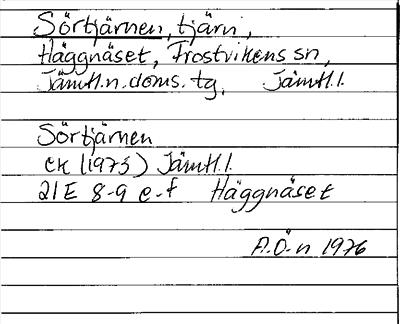 Sörtjärnen, tjärn,
Häggnäset, Frostvikens sn,
Jämtl.n.doms.tg, Jämtl.l.
Sörtjärnen
EK (1973) Jämtl.l.
21E 8-9 e-f Häggnäset
A.Ö-n 1976